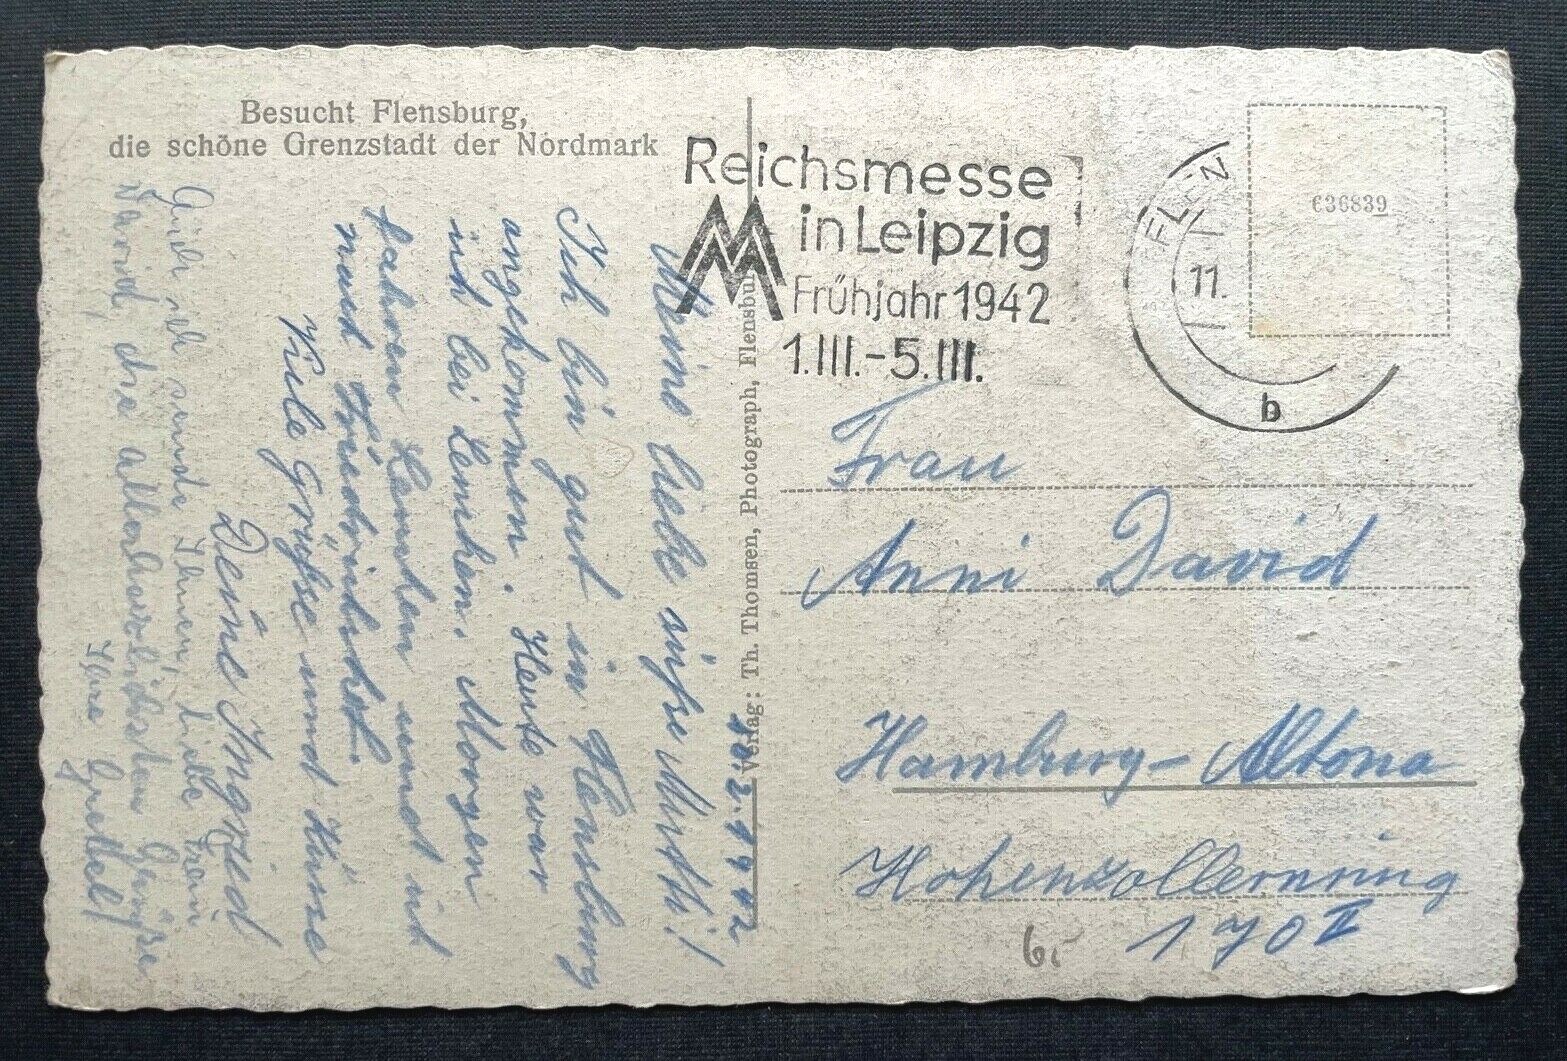 Besucht Flensburg,
die schöne Grenzstadt der Nordmark
Reichsmesse
in Leipzig
Frühjahr 1942
1.III.-5.III.
FLEN
11.
b
€36839
Verlag: Th. Thomsen, Photograph, Flensburg
10.2.1942
Meine liebe süße Mutti!
Ich bin gut in Flensburg
angekommen. Heute war
ich bei Lenchen. Morgen
fahren Lenchen und ich
nach
Viele Grüße und Küsse
Deine Ingried
Auch ich sende Ihnen, liebe Frau
David, die allerherzlichsten Grüße
Ihre Gretel!
Frau
Anni David
Hamburg-Altona
Hohenzollernring
170 II
6.